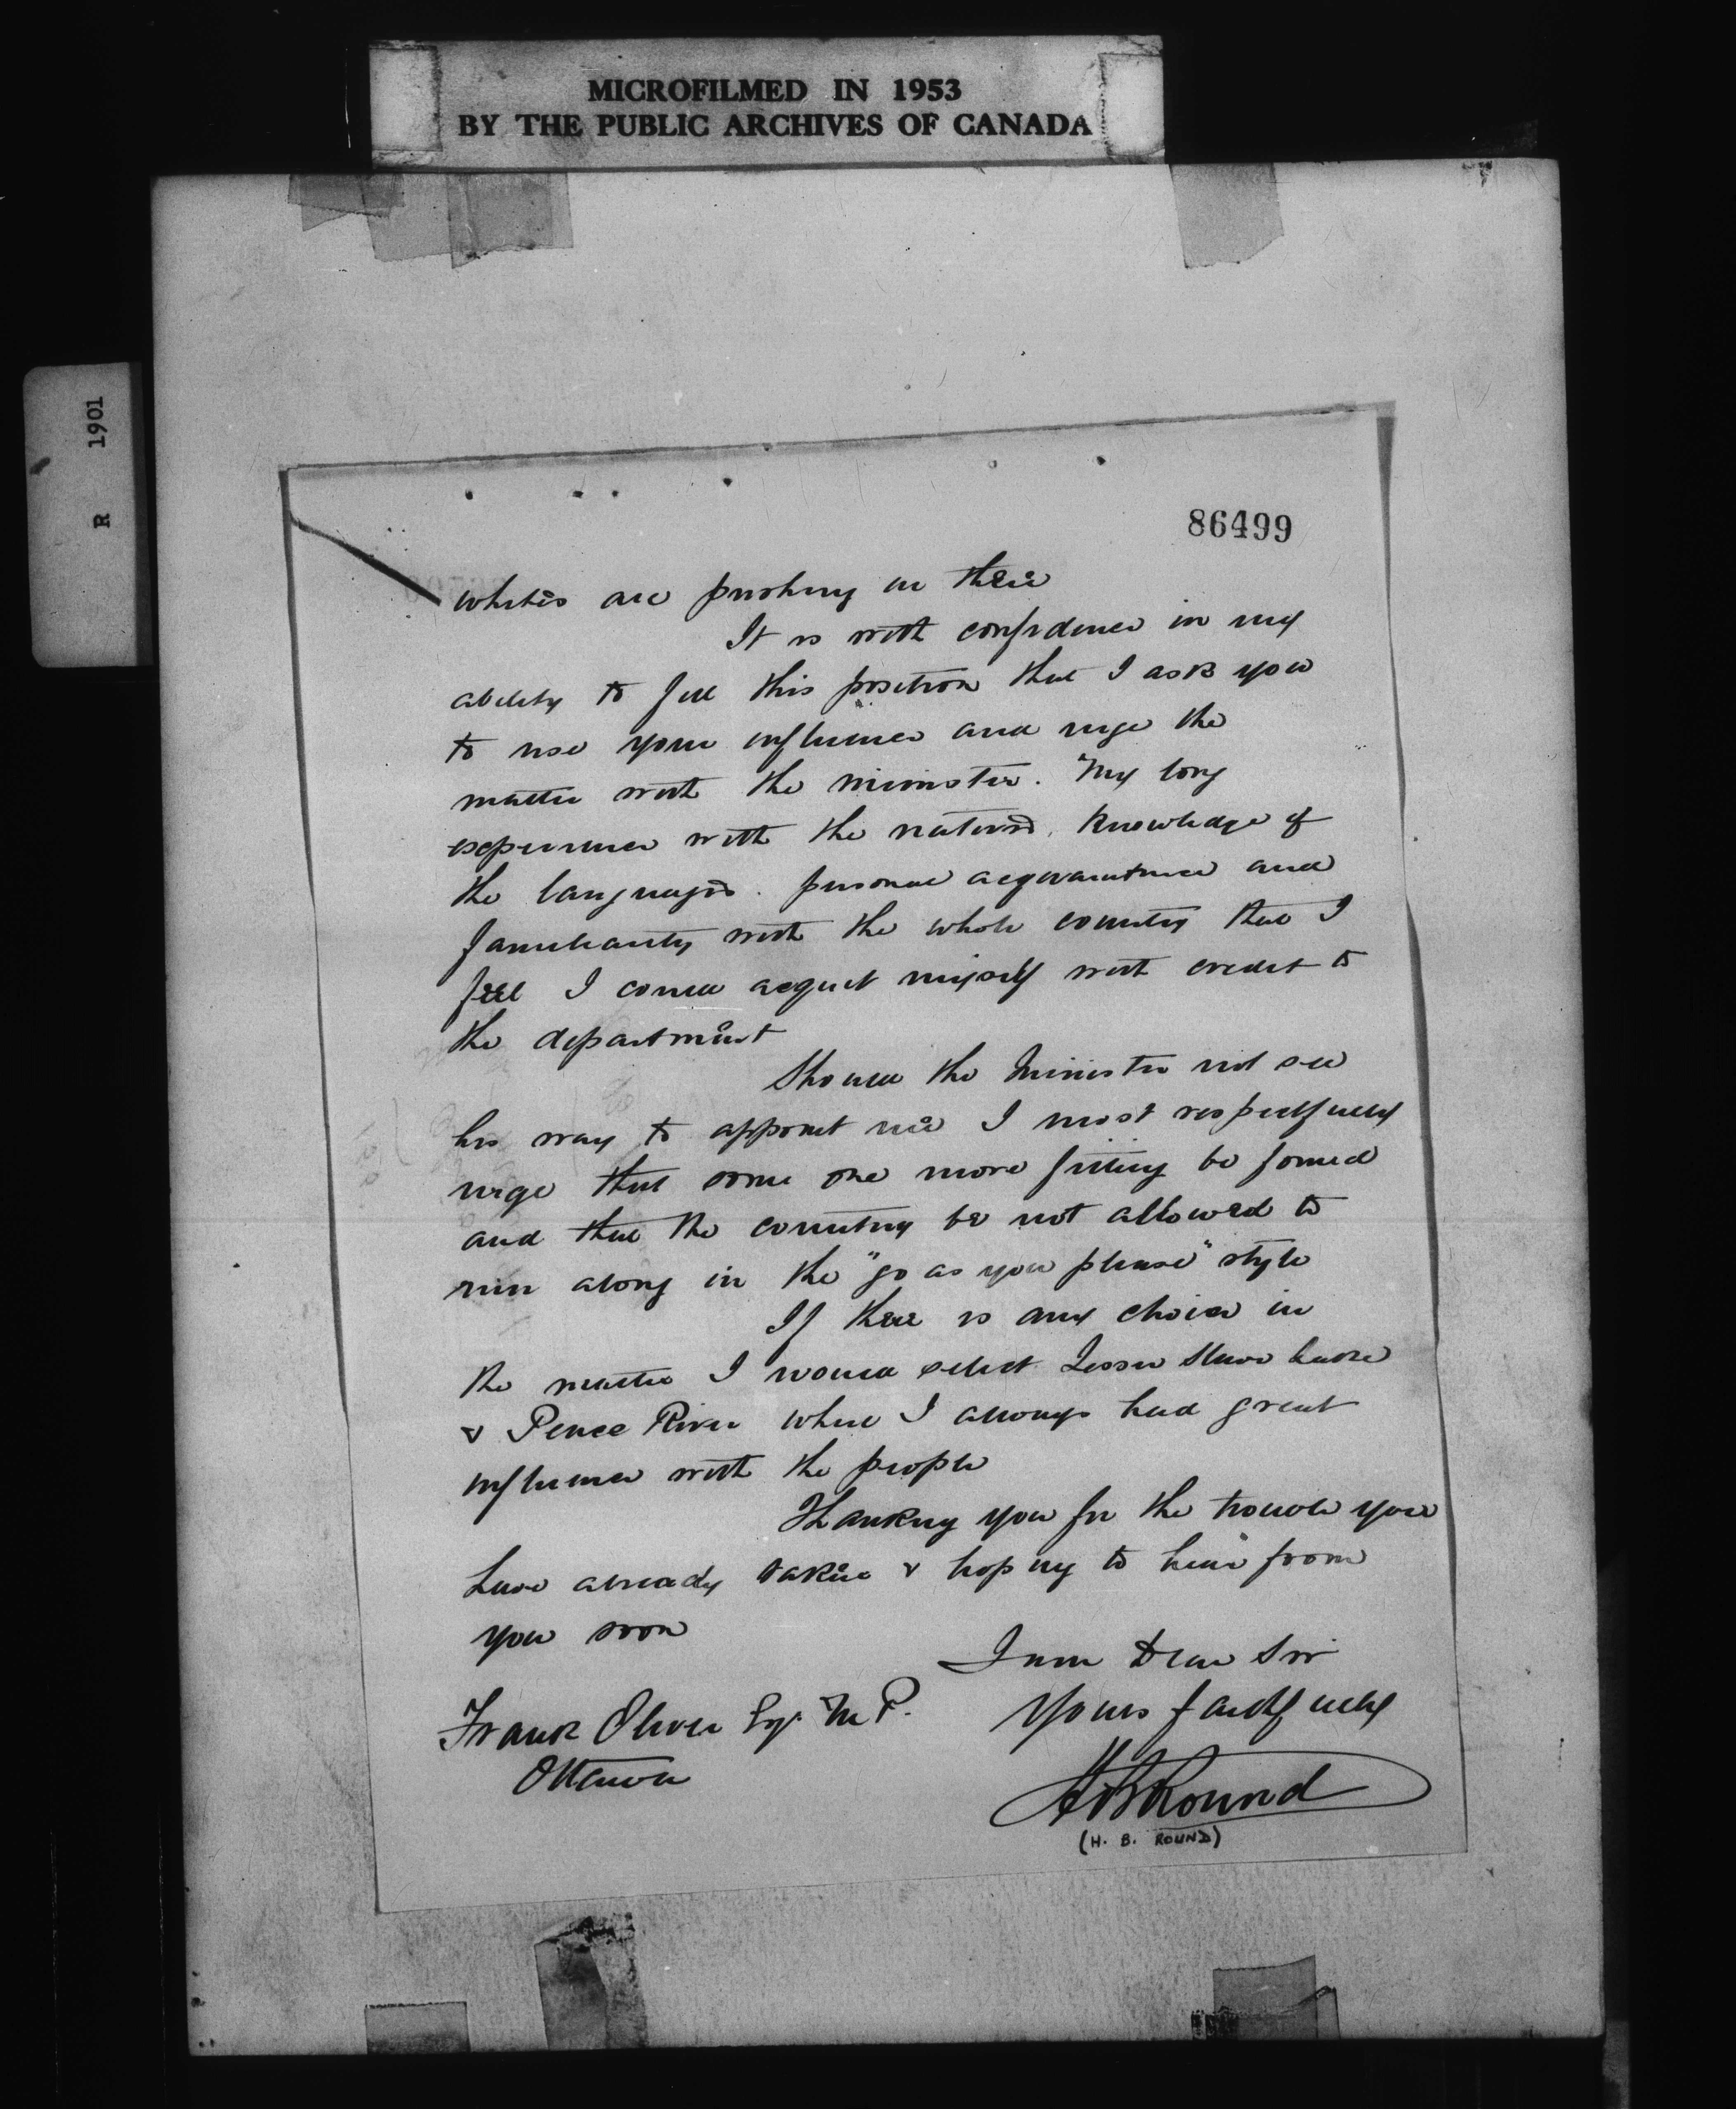 MICROFILMED IN 1953
BY THE PUBLIC ARCHIVES OF CANADA
R 1901
86499
whites are pushing in there
It is with confidence in my
ability to fill this position that I ask you
to use your influence and urge the
matter with the minister. My long
experience with the natives, knowledge of
the languages. personal acquaintance and
familiarity with the whole country that I
feel I could acquit myself with credit to
the department
Should the Minister not see
his way to appoint me I most respectfully
urge that some one more fitting be found
and that the country be not allowed to
run along in the "go as you please" style
If there is any choice in
the matter I would select Lesser Slave Lake
& Peace River where I always had great
influence with the people
Thanking you for the trouble you
have already taken & hoping to hear from
you soon
I am Dear Sir
Yours faithfully
Frank Oliver Esq. M P.
Ottawa
H B Round
(H. B. ROUND)